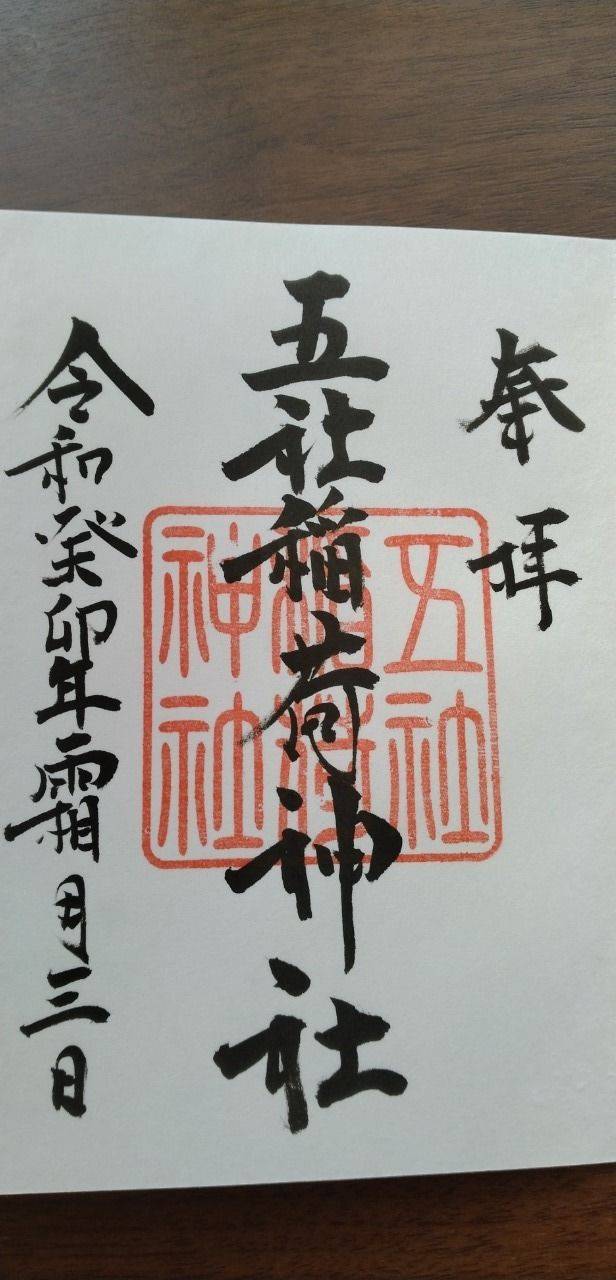 奉拝
五社稲荷神社
五社
稲荷
神社
令和癸卯年霜月三日